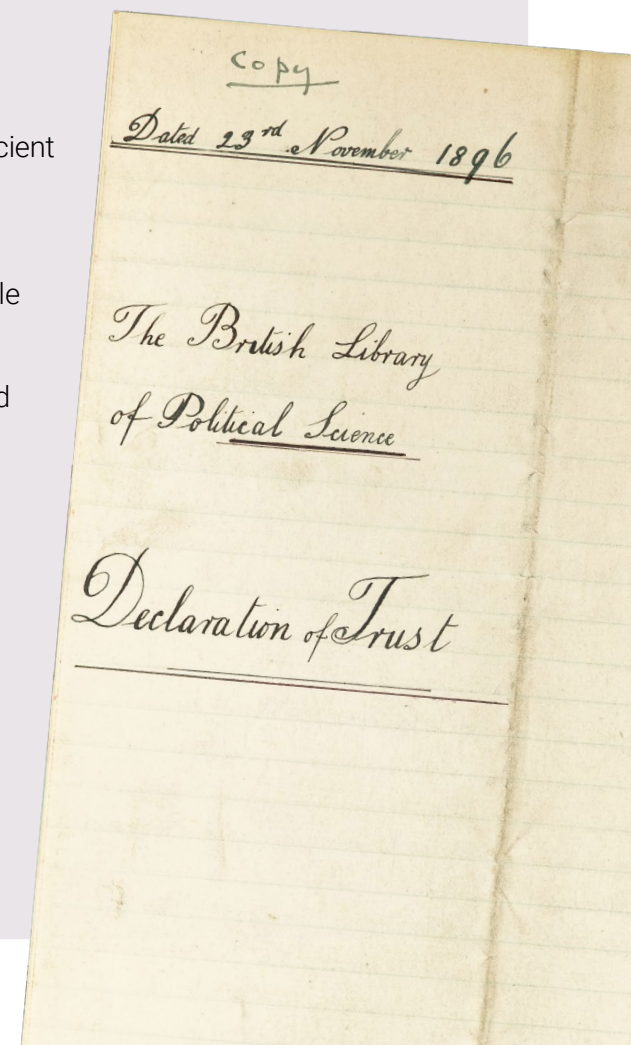 Copy
Dated 23rd November 1896
cient
le
d
The British Library
of Political Science
Declaration of Trust